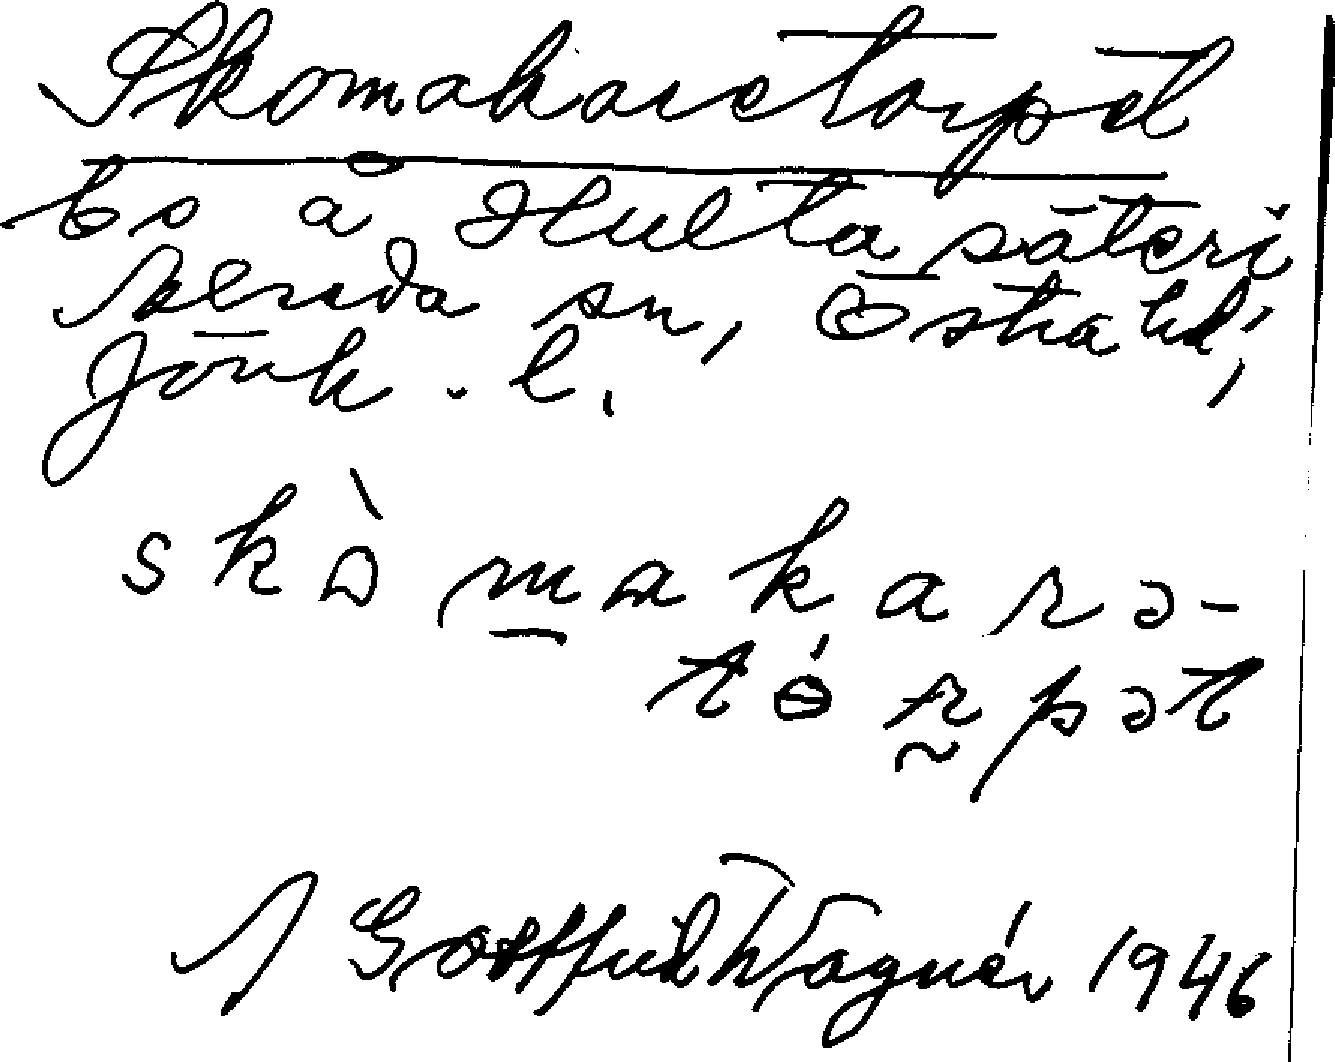 Skomakaretorpet
bs å Hulta säteri
Kärda sn, Östra hd,
Jönk. l.
skò makarə-
tórpət
Gottfrid Wagnér 1946